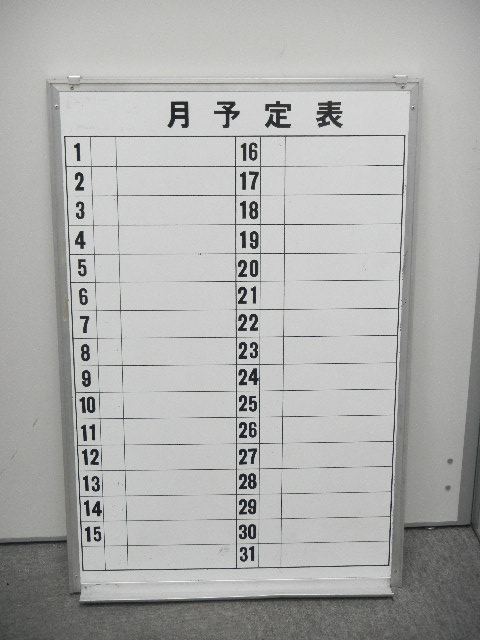 月予定表
1 16
2 17
3 18
4 19
5 20
6 21
7 22
8 23
9 24
10 25
11 26
12 27
13 28
14 29
15 30
31